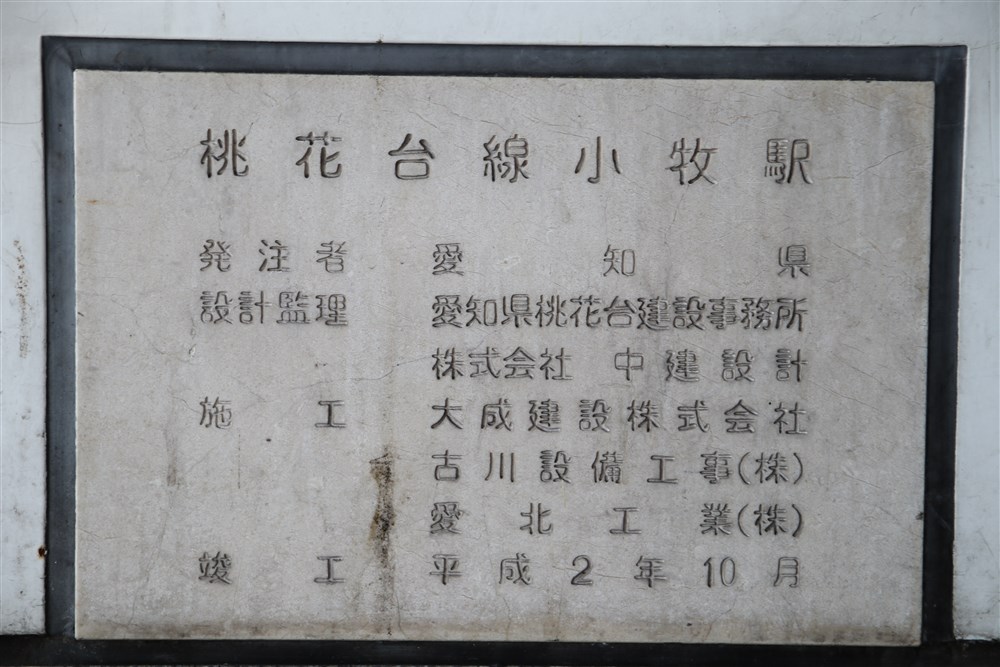 桃花台線小牧駅
発注者 愛知県
設計監理 愛知県桃花台建設事務所
株式会社 中建設計
施工 大成建設株式会社
古川設備工事(株)
愛北工業(株)
竣工 平成2年10月